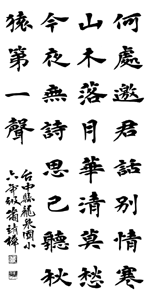 何處邀君話別情寒
山木落月華清莫愁
今夜無詩思已聽秋
猿第一聲
台中縣龍泉國小
六年級